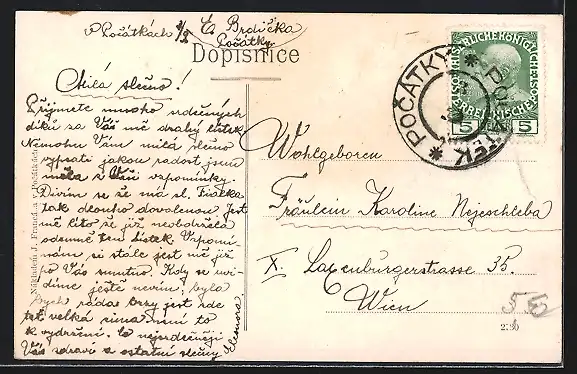 V Počátkách 2/I
E. Brdička
Počátky.
Dopisnice
Milá slečno!
Přijmete mnoho vděčných
díků za Váš mě drahý lístek
Nemohu Vám milá slečno
vypsati jakou radost jsem
měla z Vaší vzpomínky.
Divím se že má sl. Fialka
tak dlouho dovolenou. Jest
mě líto že již neobdržela
odemně ten lístek. Vzpomí-
nám si stále jest mě již
po Vás smutno. Kdy se uvi-
díme ještě nevím, byla
bych ráda brzy jest zde
též velká zima není to
k vydržení. Co nejsrdečněji
Vás zdraví a ostatní slečny
Eleonora
Nákladem J. Frančl, a v Počátkách
KAISERLICHE KÖNIGLICHE
ÖSTERREICHISCHE
5 5
POČÁTKY
POČATEK
Wohlgeboren
Fräulein Karoline Nejeschleba
X. Laxenburgerstrasse 35.
Wien
55